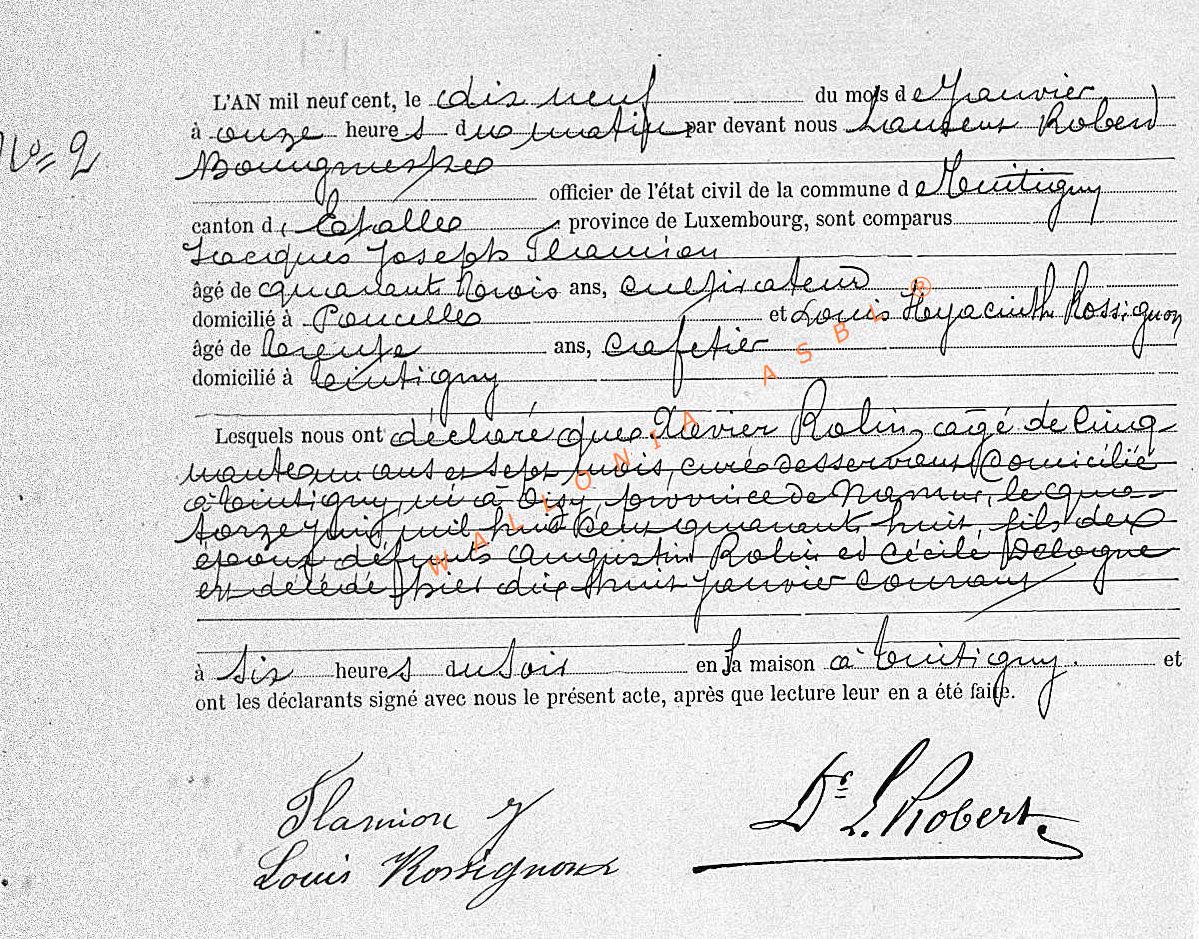 L'AN mil neuf cent, le dix neuf du mois de Janvier
à onze heures du matin par devant nous Laurent Robert
N° = 2
Bourgmestre
officier de l'état civil de la commune de Tintigny
canton d'Etalle province de Luxembourg, sont comparus
Jacques Joseph Flamion
âgé de quarant trois ans, cultivateur
domicilié à Poncelle et Louis Hyacinth Rossignon
âgé de trente ans, cafetier
domicilié à Tintigny
Lesquels nous ont déclaré que Xavier Rolin, agé de cinq-
uante un ans et sept mois, curé desservant domicilié
à Tintigny, né à Oisy, province de Namur, le qua-
torze Juin mil huit cent quarant huit, fils des
époux défunts Augustin Rolin et Cécile Delogne
est décédé hier dix huit janvier courant
à six heures du soir en sa maison à Tintigny. et
ont les déclarants signé avec nous le présent acte, après que lecture leur en a été faite.
Flamion J
Dr L. Robert.
Louis Rossignon
WALLONIA ASBL ®